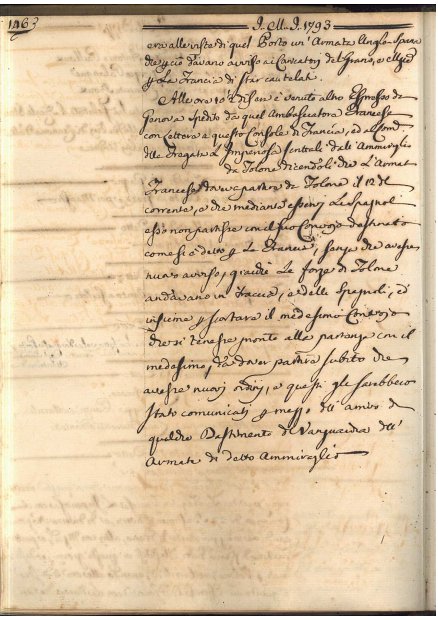 1163 J. M. J. 1793
era alle viste di quel Porto un' Armata Anglo-Span
e ciò davano avviso a' Caricatori del Grano, e
p La Francia di star cautelati.
Alle ore 10 di sera è venuto altro Espresso da
Genova spedito da quel Ambasciatore Francese
con Lettera a questo Console di Francia, ed al Com
della Fregata L'Imperiosa dell' Ammiraglio
da Tolone dicendoli che L'Armat
Francese doveva partire da Tolone il 12 del
corrente, e che mediante esservi Le Spagnol
esso non partisse con il suo Convojo destinato
come si è detto p La Francia, senza che avesse
nuovo avviso, giacchè Le forze di Tolone
andavano in traccia, e delle Spagnoli, ed
insieme p scortare il medesimo Convojo
che si tenesse pronto alla partenza con il
medesimo, da dover partire subito che
avesse nuovi ordini, e questi gli sarebbero
stati comunicati p mezzo dell' arrivo di
qualche Bastimento di Vanguardia dell'
Armata di detto Ammiraglio